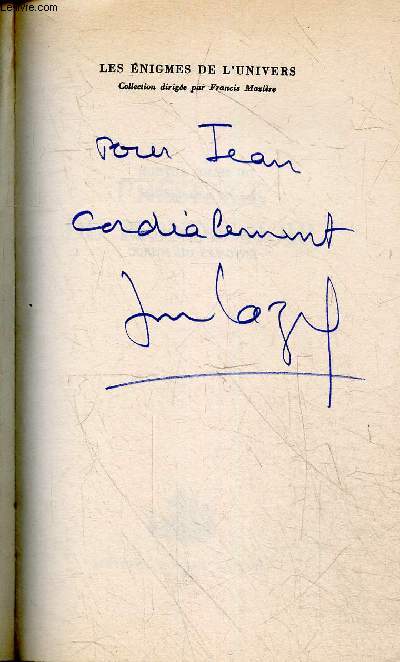 LES ÉNIGMES DE L'UNIVERS
Collection dirigée par Francis Mazière
Pour Jean
Cordialement